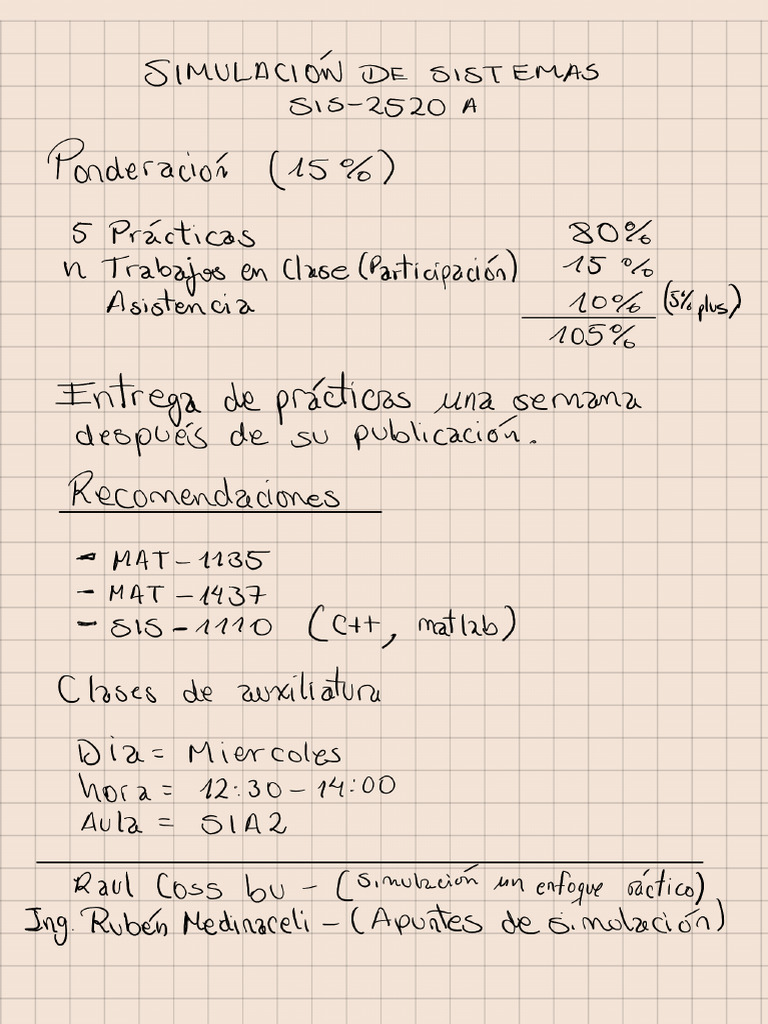 SIMULACIÓN DE SISTEMAS
SIS-2520 A
Ponderación (15%)
5 Prácticas 80%
n Trabajos en Clase (Participación) 15%
Asistencia 10% (5% plus)
105%
Entrega de prácticas una semana
después de su publicación.
Recomendaciones
- MAT-1135
- MAT-1437
- SIS-1110 (C++, matlab)
Clases de auxiliatura
Dia = Miercoles
hora = 12:30-14:00
Aula = SIA2
Raul Coss bu - (Simulación un enfoque ráctico)
Ing. Rubén Medinaceli - (Apuntes de simolación)